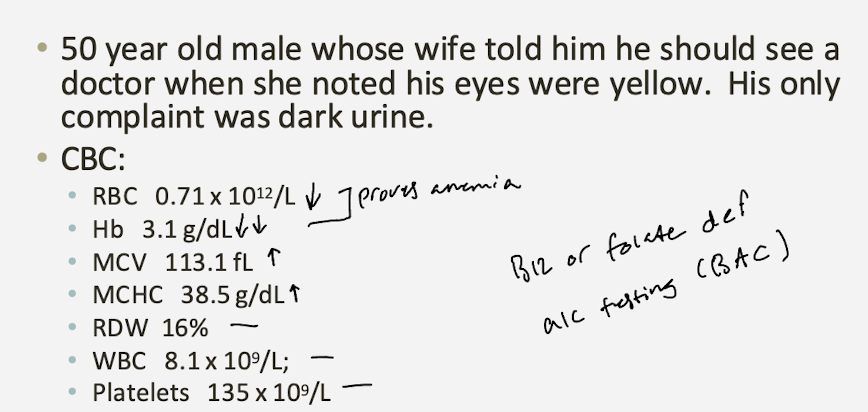 • 50 year old male whose wife told him he should see a
doctor when she noted his eyes were yellow. His only
complaint was dark urine.
• CBC:
• RBC 0.71 x 10¹²/L ↓ ] proves anemia
• Hb 3.1 g/dL ↓↓
• MCV 113.1 fL ↑
• MCHC 38.5 g/dL ↑
• RDW 16% —
• WBC 8.1 x 10⁹/L; —
• Platelets 135 x 10⁹/L —
B12 or folate def
alc testing (BAC)